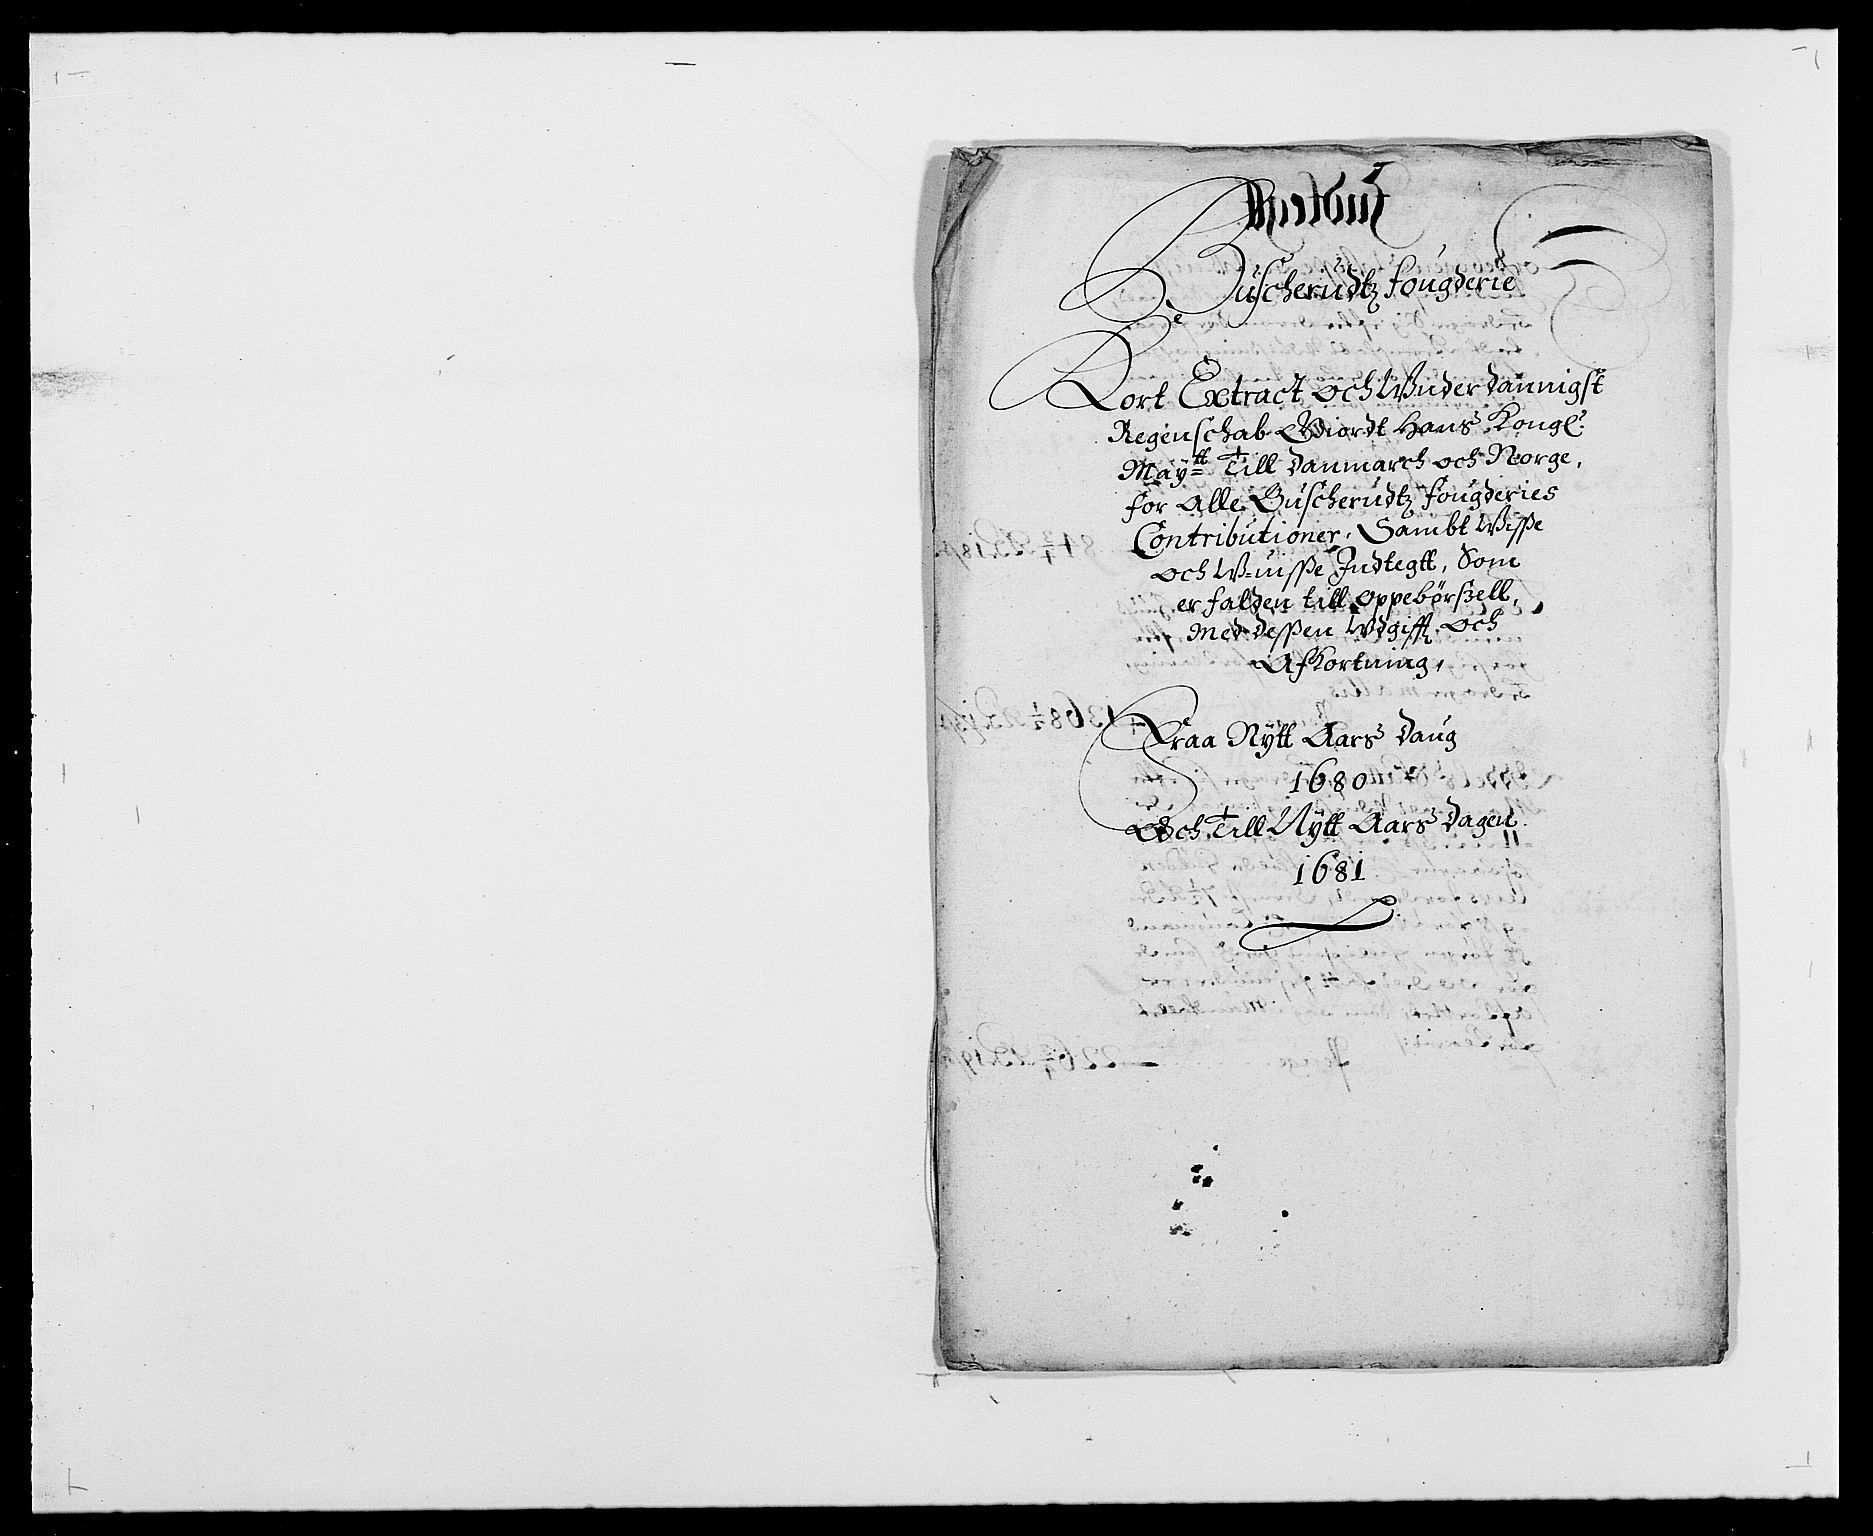 Buscherudtz fougderie
Kort Extract och Wnderdannigst
Regenschab Giordt Hans Kongl:
Maytt Till Danmarch och Norge,
for Alle Buscherudtz fougderies
Contributioner, Sambt Wisse
och W-uisse Indtegtt, Som
er falden till oppebørszell,
Med dessen Wdgifft och
Afkortning,
Fraa Nytt Aars Daug
1680
Och Till Nytt Aars Dagen
1681